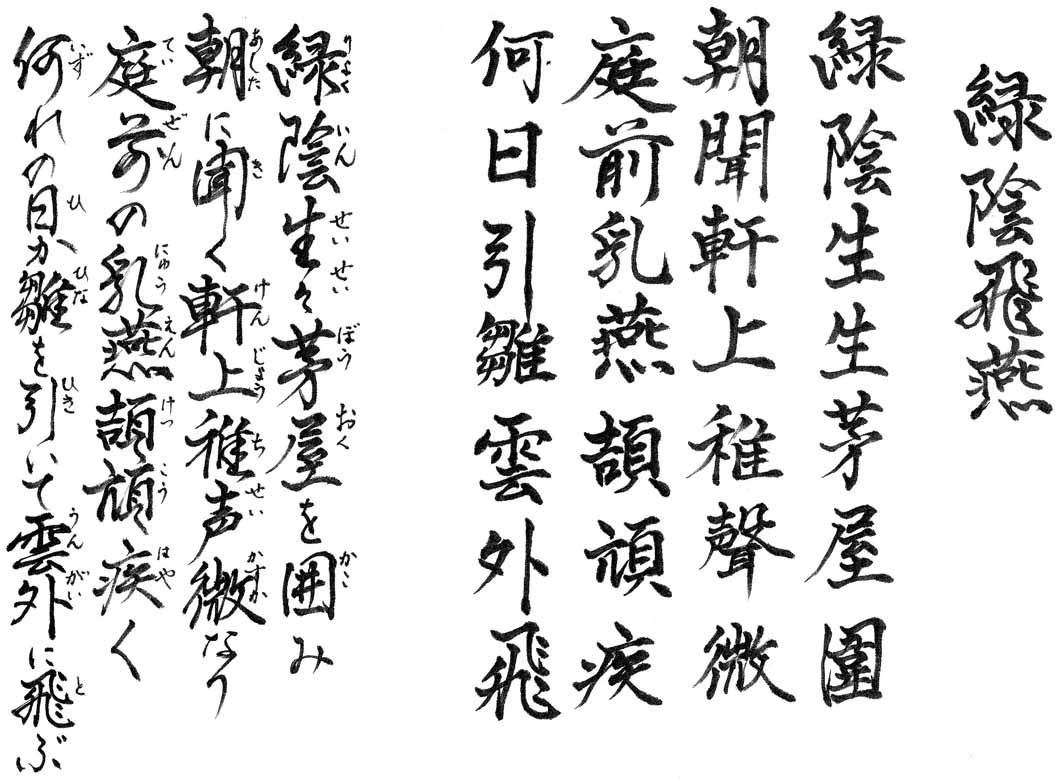 緑陰飛燕
緑陰生生茅屋圍
朝聞軒上稚聲微
庭前乳燕頡頏疾
何日引雛雲外飛
緑陰生々茅屋を囲み
りょくいんせいせいぼうおくかこ
朝に聞く軒上稚声微なり
あしたきけんじょうちせいかすか
庭前の乳燕頡頏疾く
ていぜんにゅうえんけっこうはや
何れの日か雛を引いて雲外に飛ぶ
いずひひなひきうんがいと